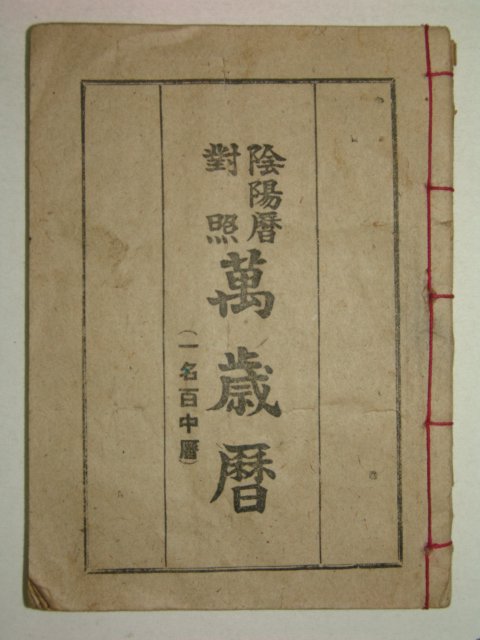 陰陽曆
對照
萬歲曆
(一名百中曆)